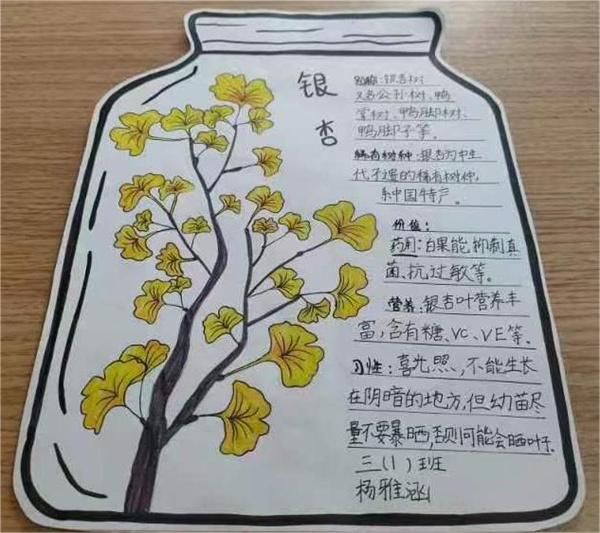 银杏
别称:银杏树
又名公孙树、鸭
掌树、鸭脚树、
鸭脚子等。
稀有树种:银杏为中生
代孑遗的稀有树种,
系中国特产。
价值:
药用:白果能抑制真
菌、抗过敏等。
营养:银杏叶营养丰
富,含有糖、VC、VE等。
习性:喜光照,不能生长
在阴暗的地方,但幼苗尽
量不要暴晒,否则可能会晒叶子。
三(1)班
杨雅涵